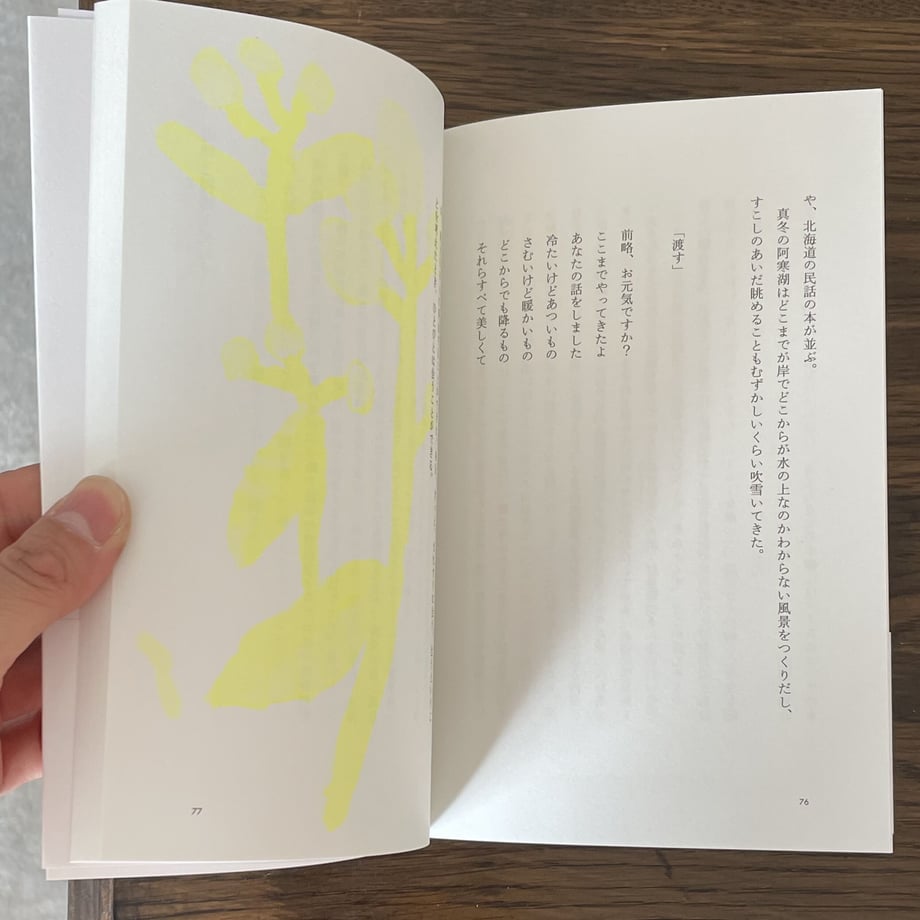 や、北海道の民話の本が並ぶ。
真冬の阿寒湖はどこまでが岸でどこからが水の上なのかわからない風景をつくりだし、
すこしのあいだ眺めることもむずかしいくらい吹雪いてきた。
「渡す」
前略、お元気ですか？
ここまでやってきたよ
あなたの話をしました
冷たいけどあついもの
さむいけど暖かいもの
どこからでも降るもの
それらすべて美しくて
76
77